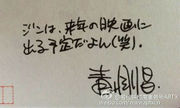 ジンは、来年の映画に
出る予定だよん(笑).
青山剛昌